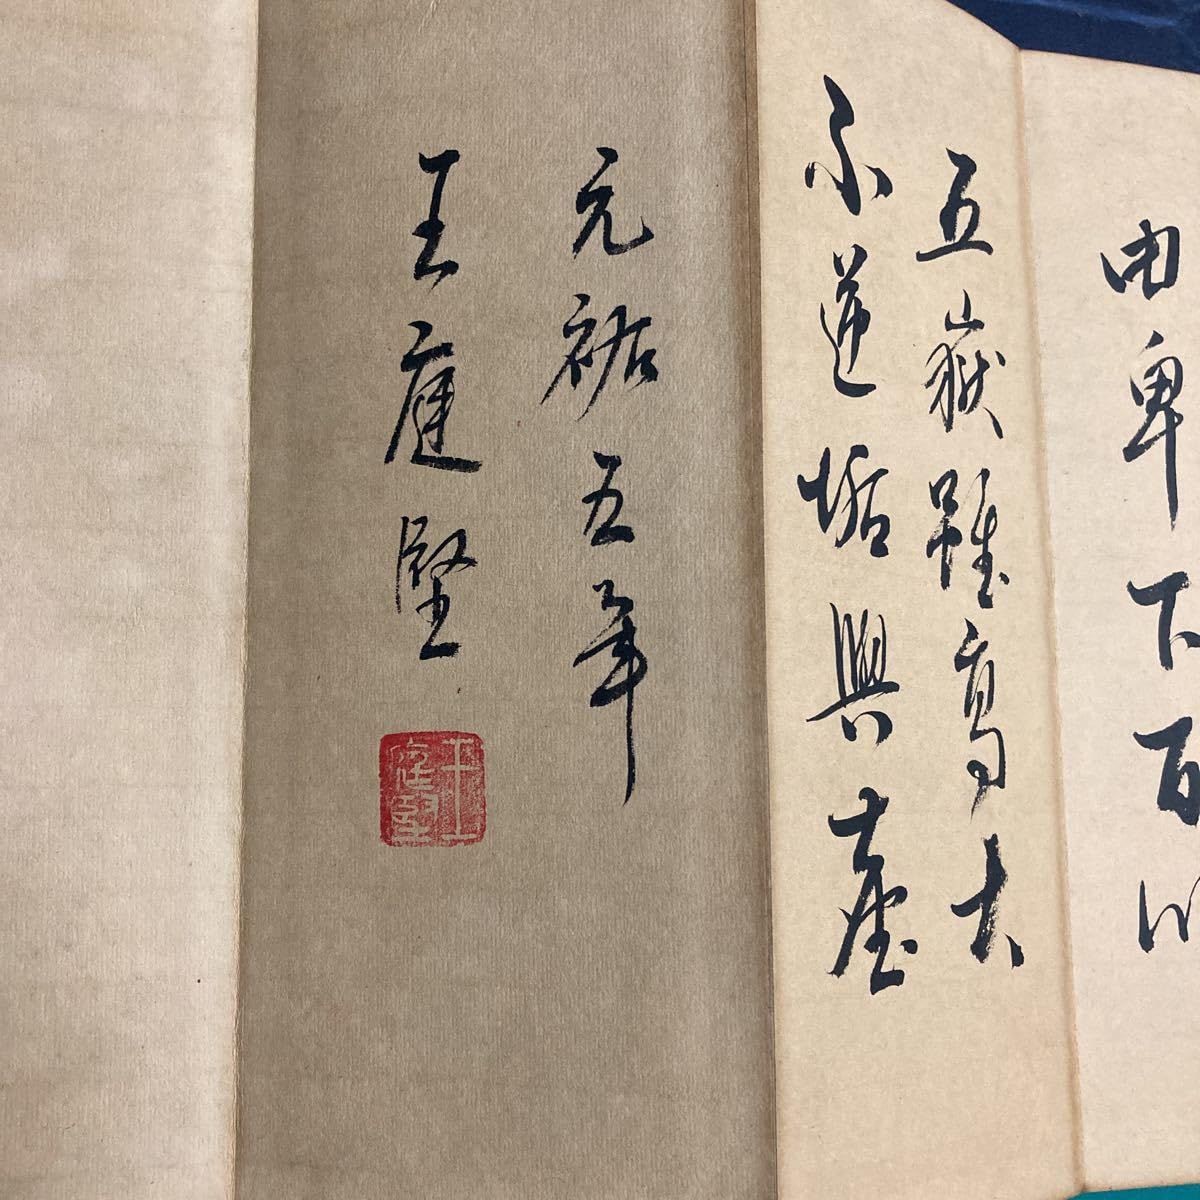 由卑下百川
五嶽雖高大
不逆垢與塵
元祐五年
王庭堅
王庭堅